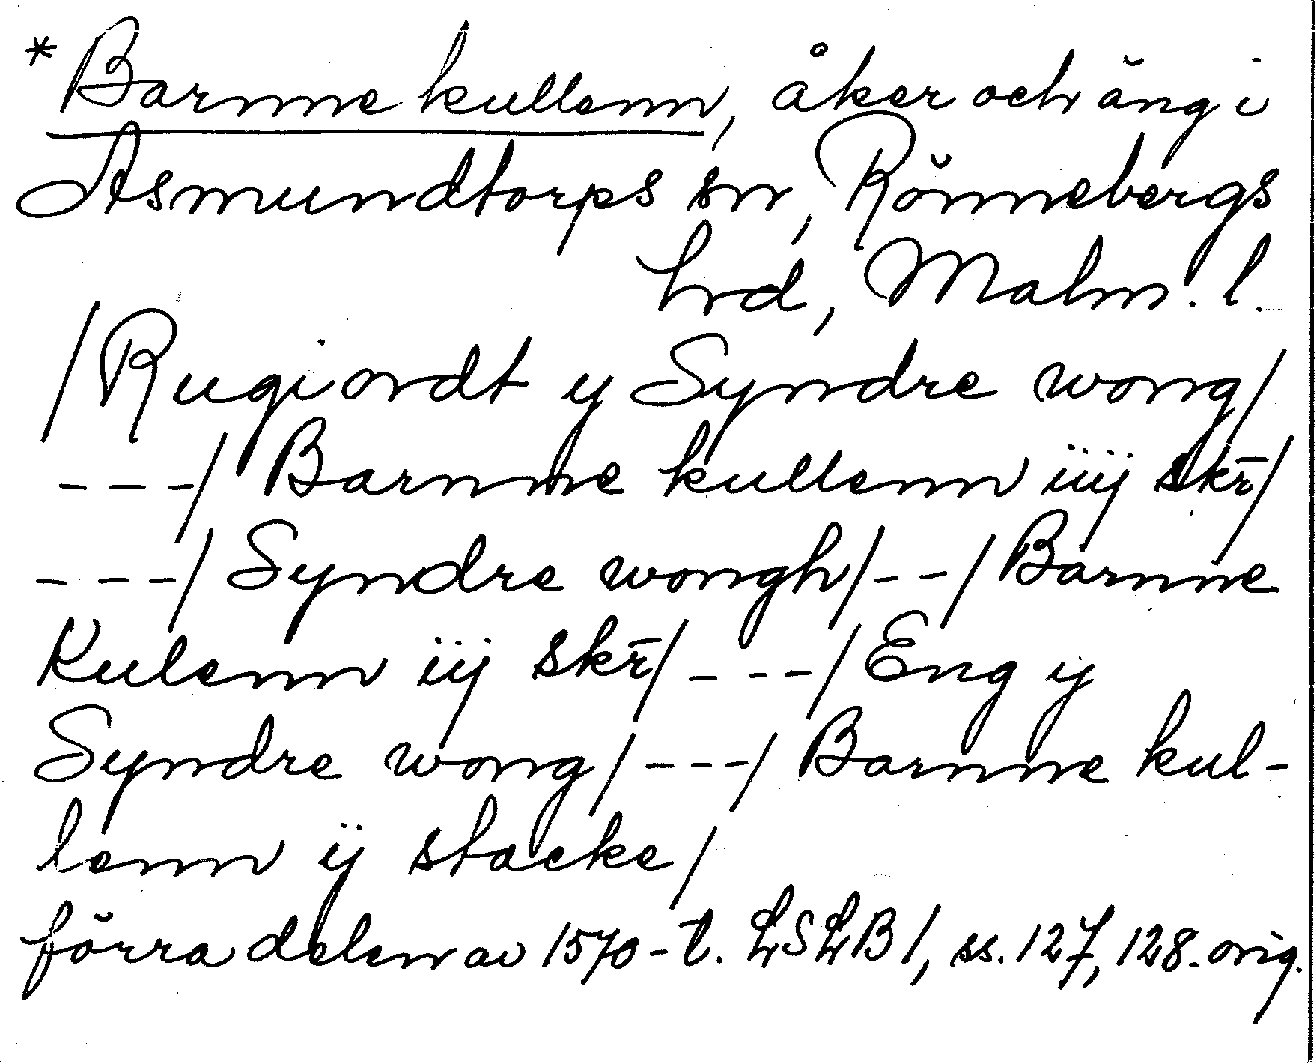 *Barnne kullenn, åker och äng i
Asmundtorps sn, Rönnebergs
hrd, Malm. l.
/Rugiordt y Syndre wong/
---/Barnne kullenn iiij skr̄/
---/Syndre wongh/--/Barnne
Kulenn iij skr̄/---/Eng y
Syndre wong/---/Barnne kul-
lenn ij stacke/
förra delen av 1570-t. LSLB 1, ss. 127, 128. orig.